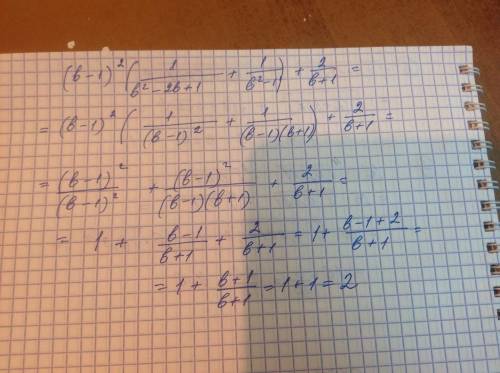 (b-1)² (1/(b²-2b+1) + 1/(b²-1)) + 2/(b+1) =
= (b-1)² (1/(b-1)² + 1/((b-1)(b+1))) + 2/(b+1) =
= (b-1)²/(b-1)² + (b-1)²/((b-1)(b+1)) + 2/(b+1) =
= 1 + (b-1)/(b+1) + 2/(b+1) = 1 + (b-1+2)/(b+1) =
= 1 + (b+1)/(b+1) = 1+1 = 2